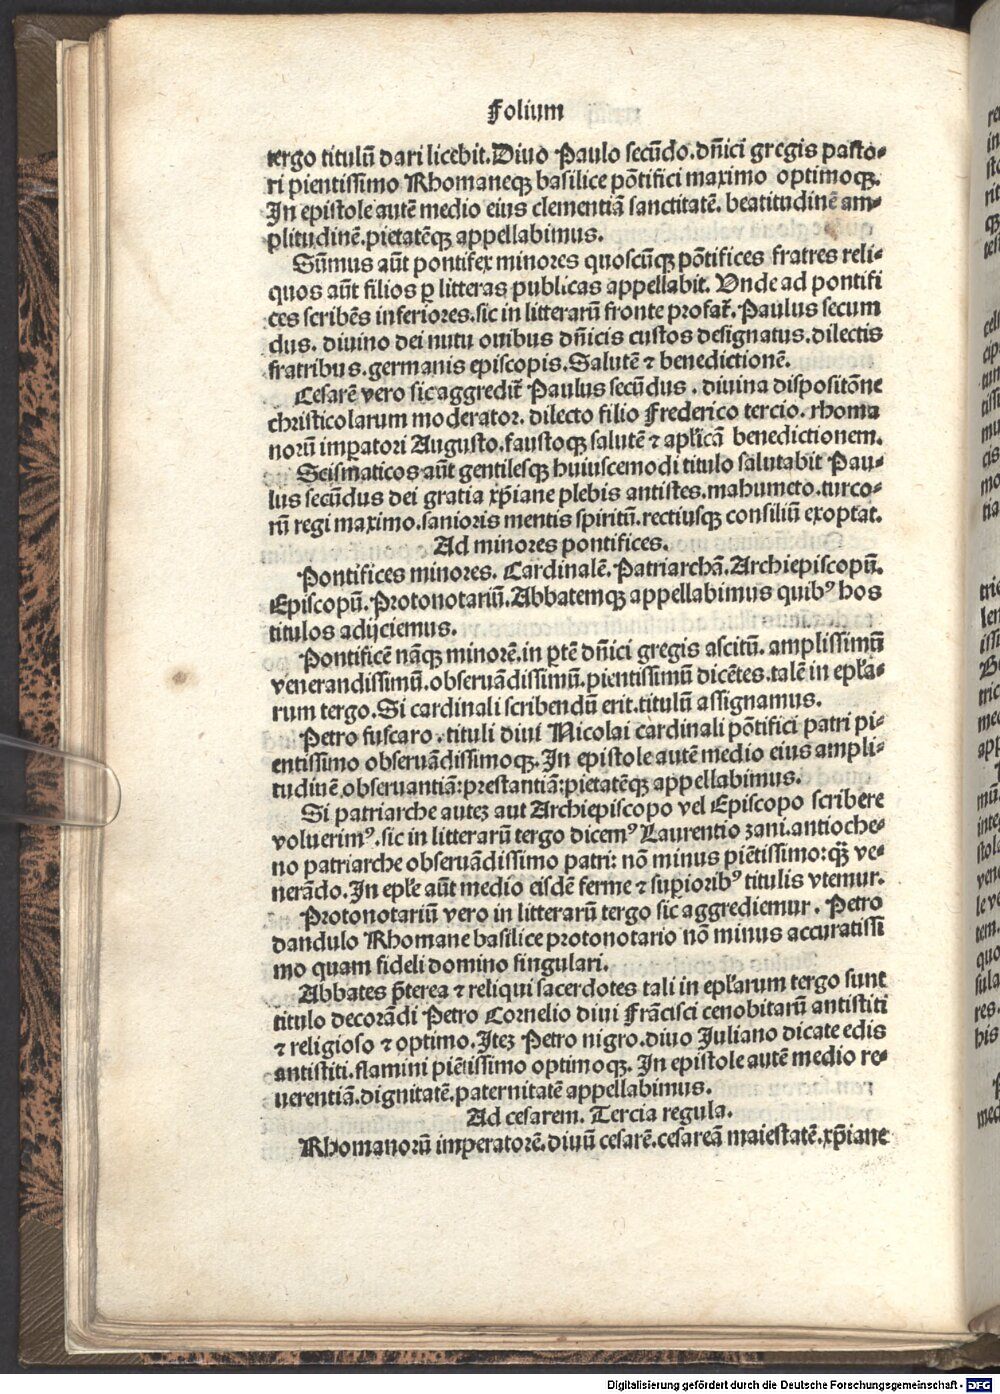 Folium
tergo titulū dari licebit. Diuo Paulo secūdo. dn̄ici gregis pasto-
ri pientissimo Rhomaneqꝫ basilice pōtifici maximo optimoqꝫ.
In epistole autē medio eius clementiā sanctitatē. beatitudinē am-
plitudinē. pietatēqꝫ appellabimus.
Sūmus aūt pontifex minores quoscūqꝫ pōtifices fratres reli-
quos aūt filios ꝑ litteras publicas appellabit. Vnde ad pontifi
ces scribēs inferiores. sic in litterarū fronte profat̄. Paulus secun
dus. diuino dei nutu ouibus dn̄icis custos designatus. dilectis
fratribus. germanis episcopis. Salutē ⁊ benedictionē.
Cesarē vero sic aggredit̄ Paulus secūdus. diuina dispositōne
christicolarum moderator. dilecto filio Frederico tercio. rhoma
norū imꝑatori Augusto. faustoqꝫ salutē ⁊ apl̄icā benedictionem.
Scismaticos aūt gentilesqꝫ huiuscemodi titulo salutabit Pau-
lus secūdus dei gratia xp̄iane plebis antistes. mahumeto. turco-
rū regi maximo. sanioris mentis spiritū. rectiusqꝫ consiliū exoptat.
Ad minores pontifices.
Pontifices minores. Cardinalē. Patriarchā. Archiepiscopū.
Episcopū. Protonotariū. Abbatemqꝫ appellabimus quibꝰ hos
titulos adijciemus.
Pontificē nāqꝫ minorē. in ꝑtē dn̄ici gregis ascitū. amplissimū
venerandissimū. obseruādissimū. pientissimū dicētes. talē in epl̄a-
rum tergo. Si cardinali scribendū erit. titulū assignamus.
Petro fuscaro. tituli diui Nicolai cardinali pōtifici patri pi-
entissimo obseruādissimoqꝫ. In epistole autē medio eius ampli-
tudinē obseruantiā: prestantiā: pietatēqꝫ appellabimus.
Si patriarche auteꝫ aut Archiepiscopo vel Episcopo scribere
voluerimꝰ. sic in litterarū tergo dicemꝰ Laurentio zani. antioche-
no patriarche obseruādissimo patri: nō minus piētissimo: qꝫ̄ ve-
nerādo. In epl̄e aūt medio eisdē ferme ⁊ suꝑioribꝰ titulis vtemur.
Protonotariū vero in litterarū tergo sic aggrediemur. Petro
dandulo Rhomane basilice protonotario nō minus accuratissi
mo quam fideli domino singulari.
Abbates p̄terea ⁊ reliqui sacerdotes tali in epl̄arum tergo sunt
titulo decorādi Petro Cornelio diui Frācisci cenobitarū antistiti
⁊ religioso ⁊ optimo. Iteꝫ Petro nigro. diuo Iuliano dicate edis
antistiti. flamini piētissimo optimoqꝫ. In epistole autē medio re-
uerentiā. dignitatē. paternitatē appellabimus.
Ad cesarem. Tercia regula.
Rhomanorū imperatorē. diuū cesarē. cesareā maiestatē. xp̄iane
Digitalisierung gefördert durch die Deutsche Forschungsgemeinschaft - DFG